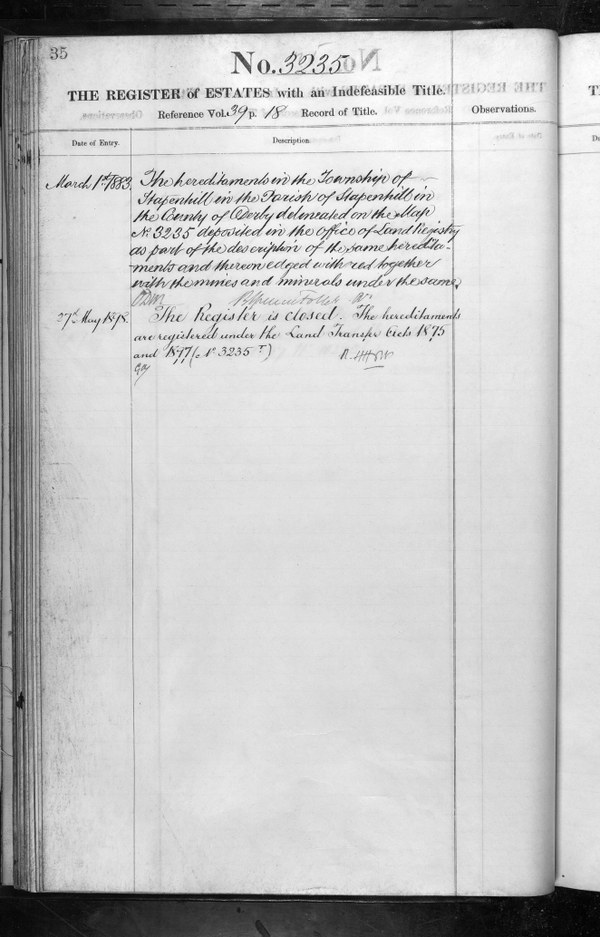 35
No. 3235
THE REGISTER of ESTATES with an Indefeasible Title.
Reference Vol. 39 p. 18 Record of Title.
Observations.
Date of Entry.
Description.
March 1st 1883. The hereditaments in the Township of
Stapenhill in the Parish of Stapenhill in
the County of Derby delineated on the Map
No 3235 deposited in the Office of Land Registry
as part of the description of the same heredita-
ments and thereon edged with red together
with the mines and minerals under the same.
27th May 1898. The Register is closed. The hereditaments
are registered under the Land Transfer Acts 1875
and 1897 (No 3235 T)